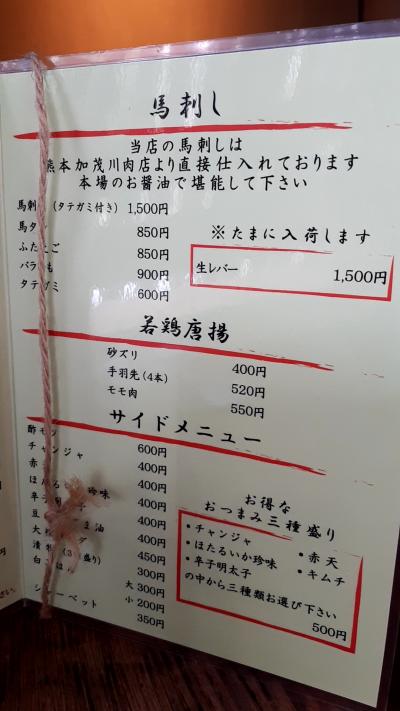 馬刺し
当店の馬刺しは
熊本加茂川肉店より直接仕入れております
本場のお醤油で堪能して下さい
馬刺 (タテガミ付き) 1,500円
馬タ 850円
ふた ご 850円
バラ も 900円
タテガミ 600円
※たまに入荷します
生レバー 1,500円
若鶏唐揚
砂ズリ 400円
手羽先(4本) 520円
モモ肉 550円
サイドメニュー
酢モツ 600円
チャンジャ 400円
赤 400円
ほたるいか珍味 400円
辛子明 400円
豆 ま油 400円
大根 ダ 450円
漬物 (3 盛り) 300円
白 は 大 300円
小 200円
シャーベット 350円
お得な
おつまみ三種盛り
・チャンジャ ・赤天
・ほたるいか珍味 ・キムチ
・辛子明太子
の中から三種類お選び下さい
500円
円
さい。